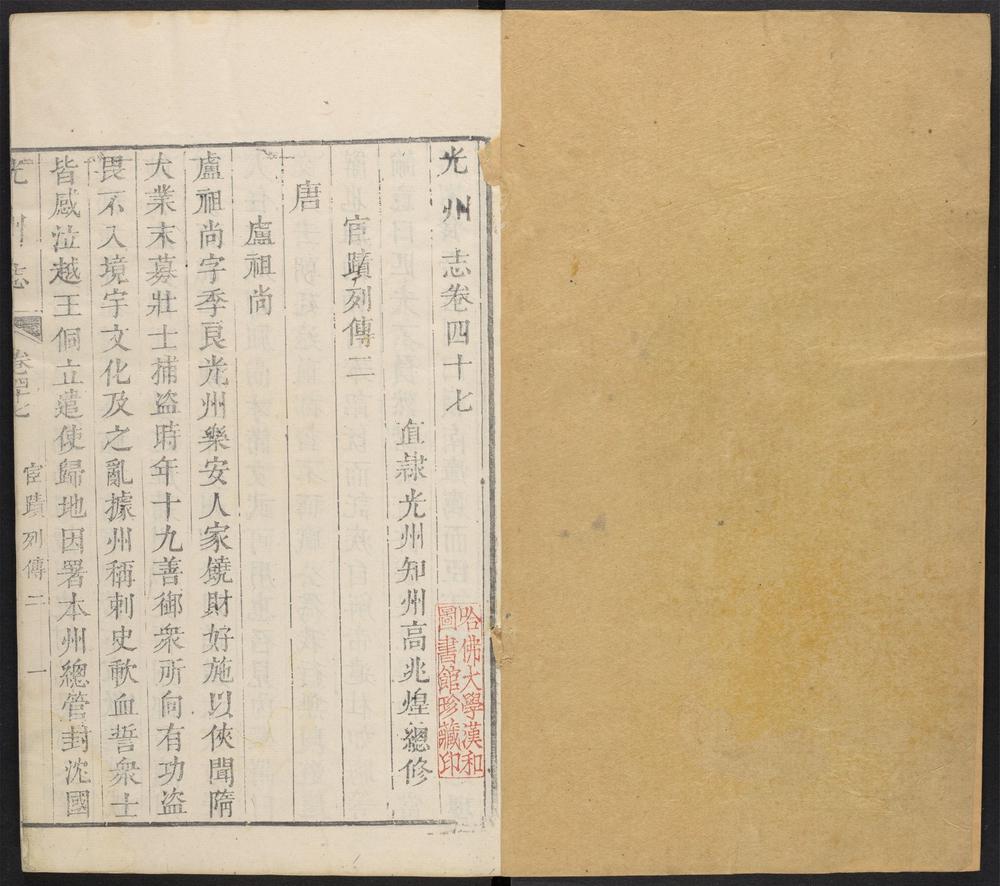 光州志卷四十七
直隸光州知州高兆煌總修
宦蹟列傳二
唐
盧祖尚
盧祖尚字季良光州樂安人家饒財好施以俠聞隋
大業末募壯士捕盜時年十九善御衆所向有功盜
畏不入境宇文化及之亂據州稱刺史歃血誓衆士
皆感泣越王侗立遣使歸地因署本州總管封沈國
光州志
卷四十七
宦蹟列傳二
一
哈佛大學漢和
圖書館珍藏印